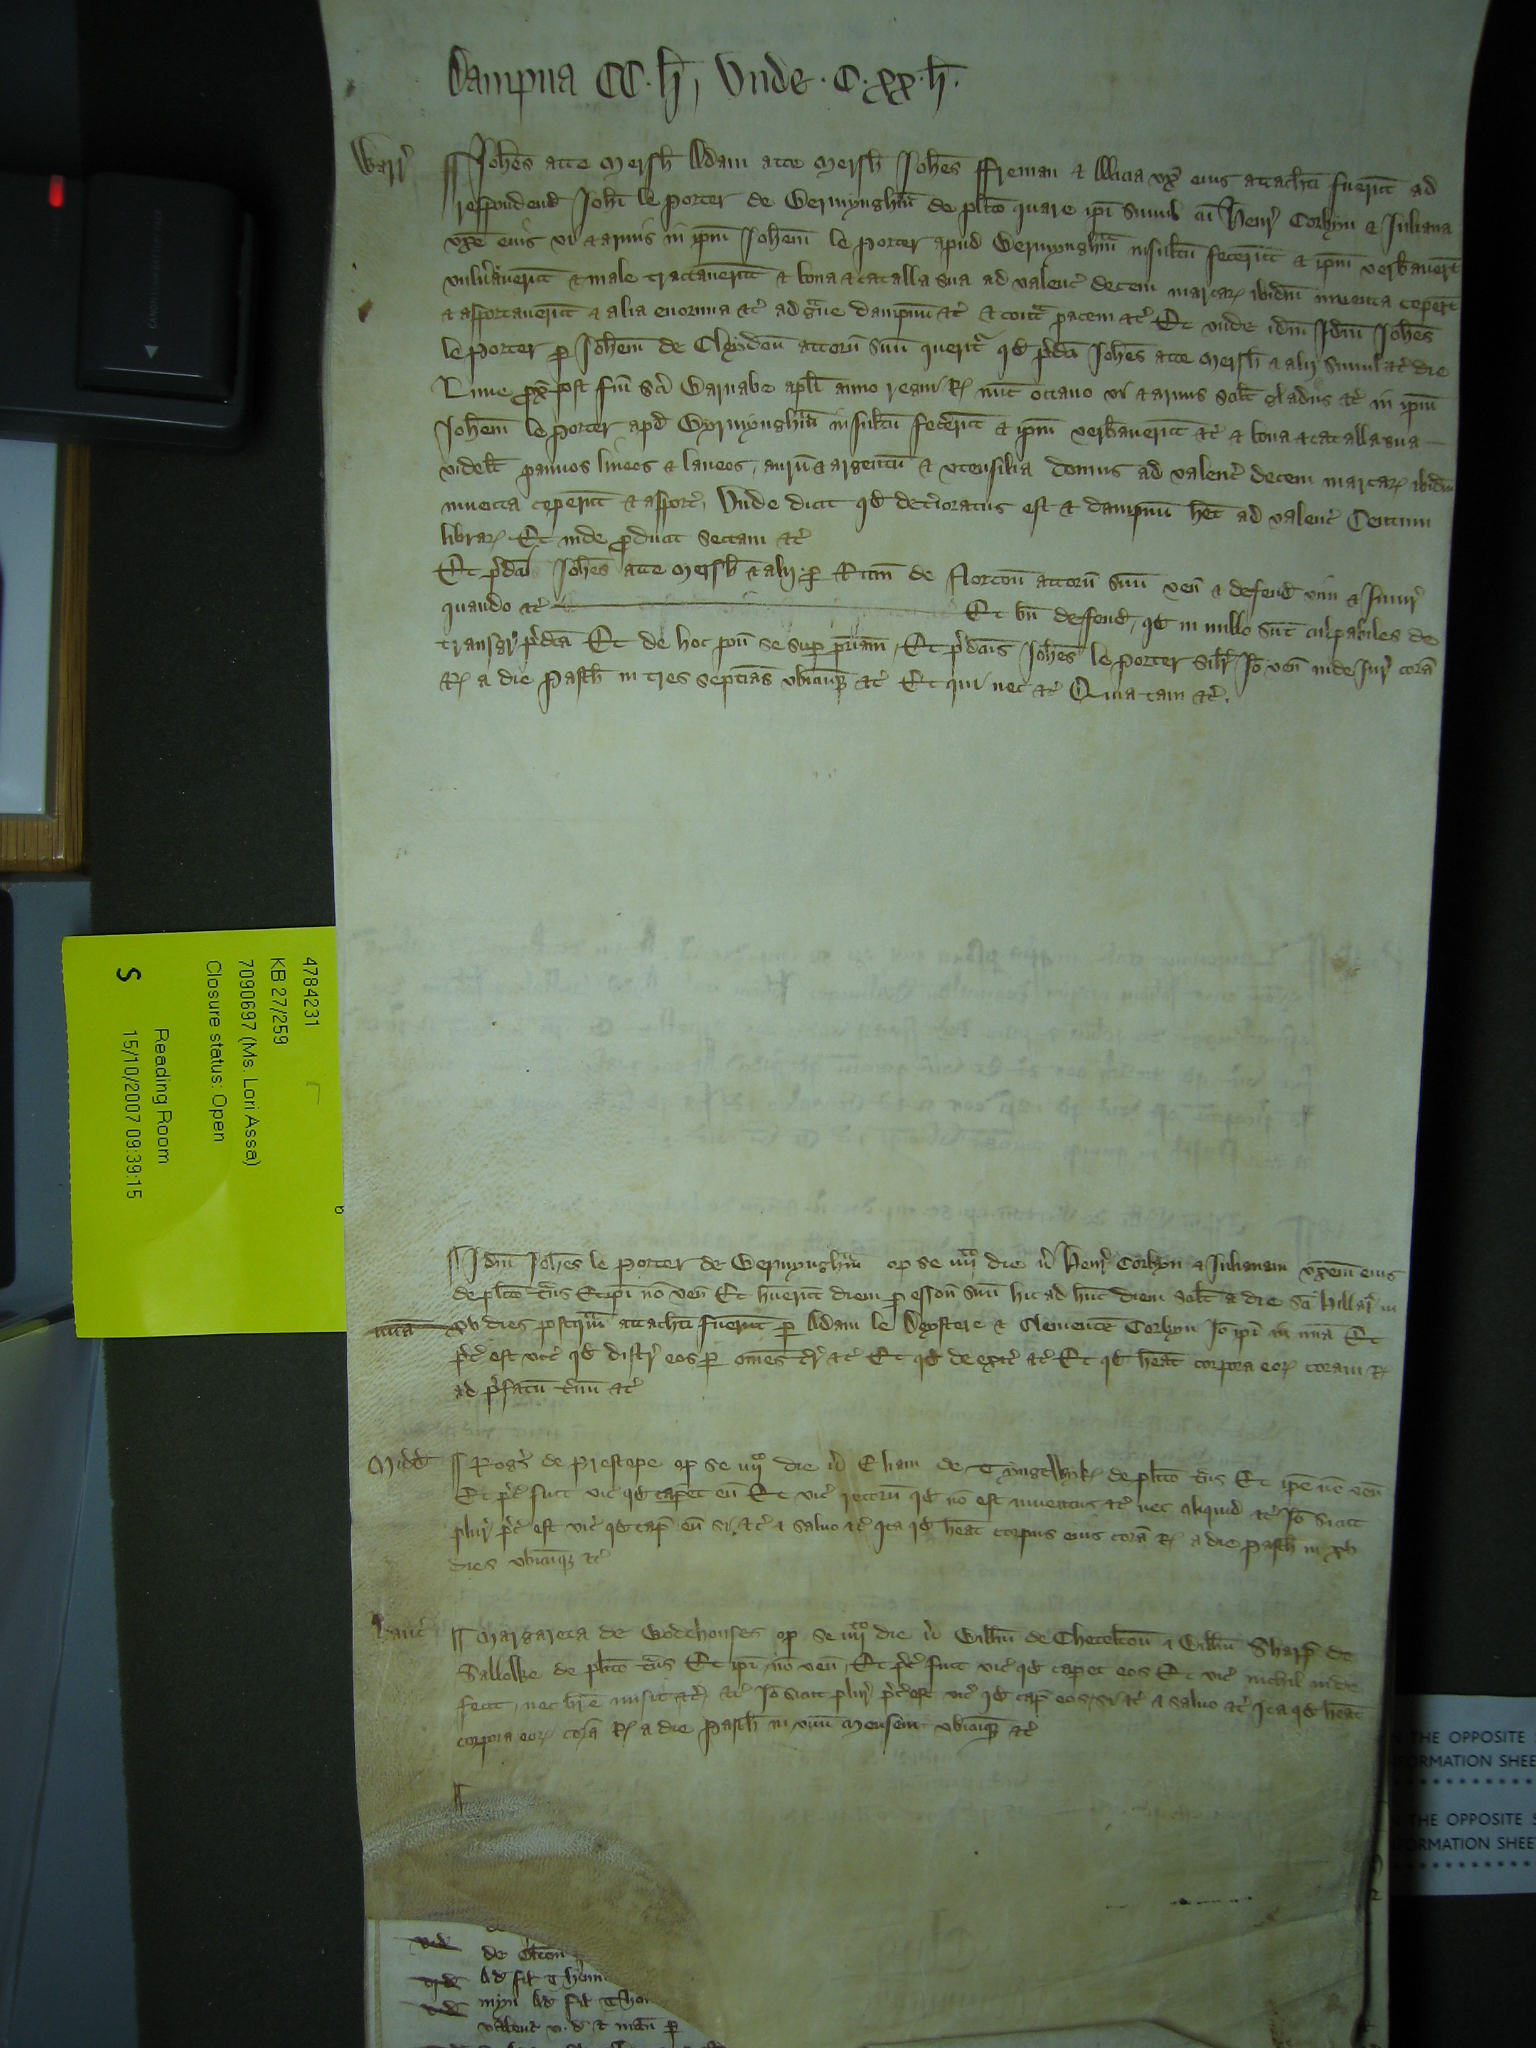 Dampna CC. li, Unde . C . xx . li.
Warr'
Joh'es atte Mersh Adam atte Mersh Joh'es Freman & Alicia ux' eius attach'ti fuer'nt ad
respondend' Joh'i le Porter de Bermyngh'm de pl'ito quare ip'i simul cu' Henr' Corbyn & Juliana
ux'e eius vi & armis in ip'm Joh'em le Porter apud Bermyngh'm insultu' fecer'nt & ip'm verb'aver'nt
vuln'aver'nt & male tractaver'nt & bona & catalla sua ad valenc' decem marcar' ibid'm inventa ceper'nt
& asportaver'nt & alia enormia &c' ad g'ave dampnu' &c' & cont'a pacem &c' Et unde id'm Joh'es
le Porter p' Joh'em de Cleydon' attorn' suu' querit' q'd p'd'c'i Joh'es atte Mersh & alii simul &c' die
Lune p'x' post f'm s'c'i Barnabe ap'li anno regni R' nu'c octavo vi & armis scil't gladiis &c' in ip'm
Joh'em le Porter apd' Byrmyngh'm insultu' fecer'nt & ip'm verb'aver'nt &c' & bona & catalla sua
videl't pannos lineos & laneos, auru' & argentu' & utensilia domus ad valenc' decem marcar' ibid'm
inventa ceper'nt & asport', Unde dicit q'd det'ioratus est & dampnu' h'et ad valenc' Centum
librar' Et inde p'ducit sectam &c'
Et p'd'c'i Joh'es atte Mersh & alii p' R'um de Norton' attorn' suu' ven' & defend' vim & Injur'
quando &c' Et b'n defend', q'd in nullo su't culpabiles de
transgr' p'd'c'a Et de hoc pon' se sup' p'riam, Et p'd'c'us Joh'es le Porter sil'r Io' ven' inde Jur' cora'
R' a die Pasch' in tres septi'as ubicu'q' &c' Et qui nec &c' Quia tam &c'.
Id'm Joh'es le Porter de Bermyngh'm op' se iiii'to die v's' Henr' Corbyn & Julianam ux'em eius
de pl'ito t'ns' Et ip'i no' ven' Et h'uer'nt diem p' esson' suu' hic ad hu'c diem scil't a die s'c'i Hillar' in
mi'a
xv dies postq'm attach'ti fuer'nt p' Adam le Dexstere & Clemente' Corbyn Io' ip'i in mi'a Et
p'c' est vic' q'd distr' eos p' om'es t'r' &c' Et q'd de exit' &c' Et q'd h'eat corpora eor' coram R'
ad p'fatu' t'minu' &c'
Midd'
Rog's de Prestope op' se iiii'to die v's' Eliam de Tyngewyk' de pl'ito t'ns' Et ip'e no' ven'
Et p'c' fuit vic' q'd capet eu' Et vic' retorn' q'd no' est inventus &c' nec aliquid &c' Io' sicut
plur' p'c' est vic' q'd cap' eu' si &c' & salvo &c' Ita q'd h'eat corpus eius cora' R' a die Pasch' in xv
dies ubicu'q' &c'
Margareta de Wodehouses op' se iiii'to die v's' Will'm de Chetelton' & Will'm Sharp' de
de pl'ito t'ns' Et ip'i no' ven', Et p'c' fuit vic' q'd capet eos Et vic' nichil inde
fecit, nec br'e misit &c' &c' Io' sicut plur' p'c' est vic' q'd cap' eos si &c' & salvo &c' Ita q'd h'eat
corpora eor' cora' R' a die Pasch' in unu' Mensem ubicu'q' &c'
4784231
KB 27/259
7090697 (Ms. Lori Assa)
Closure status: Open
Reading Room
S 15/10/2007 09:39:15
THE OPPOSITE
FORMATION SHEE
THE OPPOSITE
FORMATION SHEE